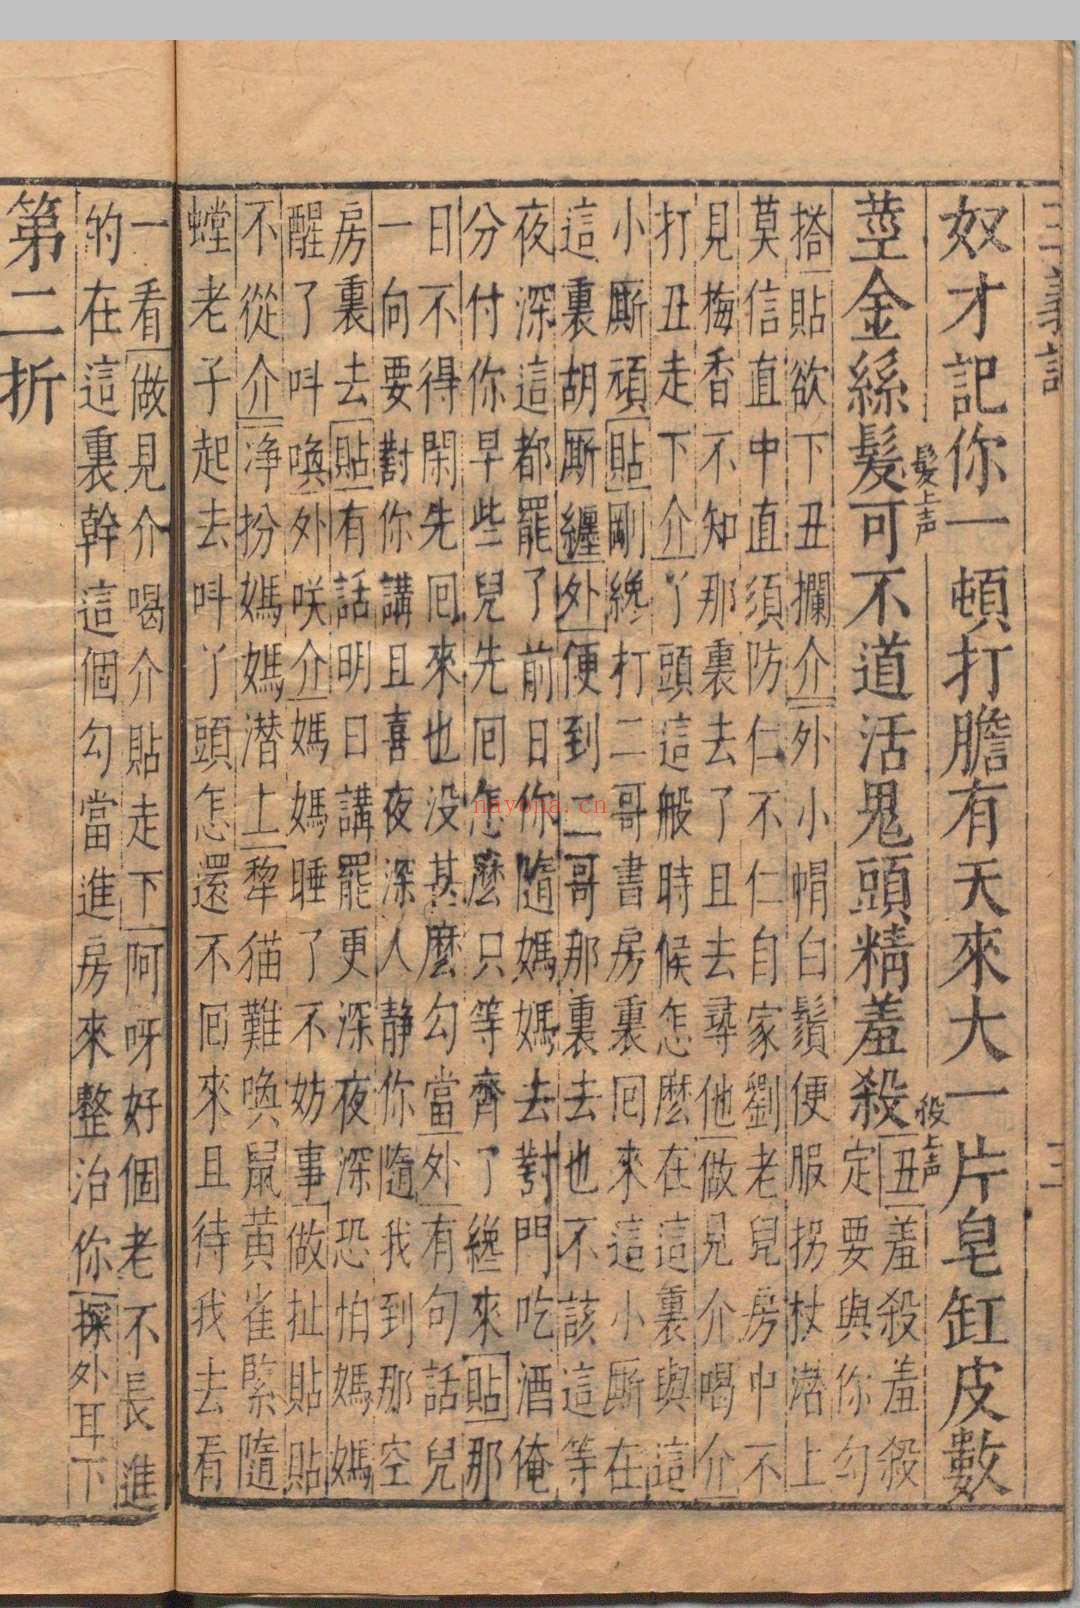 奴才記你一頓打膽有天來大一片皂缸皮數
莖金絲髮可不道活鬼頭精羞殺丑羞殺羞殺
髮上声
殺上声
定要與你勾
搭貼欲下丑攔介外小帽白鬚便服拐杖潜上
莫信直中直須防仁不仁自家劉老兒房中不
見梅香不知那裏去了且去尋他做見介喝介
打丑走下介丫頭這般時候怎麽在這裏與這
小厮頑貼剛纔打二哥書房裏囘來這小厮在
這裏胡厮纏外便到二哥那裏去也不該這等
夜深這都罷了前日你隨媽媽去對門吃酒俺
分付你早些兒先囘怎麽只等齊了纔來貼那
日不得閑先囘來也没甚麽勾當外有句話兒
一向要對你講且喜夜深人静你隨我到那空
房裏去貼有話明日講罷更深夜深恐怕媽媽
醒了呌喚外咲介媽媽睡了不妨事做扯貼貼
不從介净扮媽媽潜上犂猫難喚鼠黄雀緊隨
螳老子起去呌丫頭怎還不囘來且待我去看
一看做見介喝介貼走下阿呀好個老不長進
的在這裏幹這個勾當進房來整治你採外耳下
第二折
nayona.cn